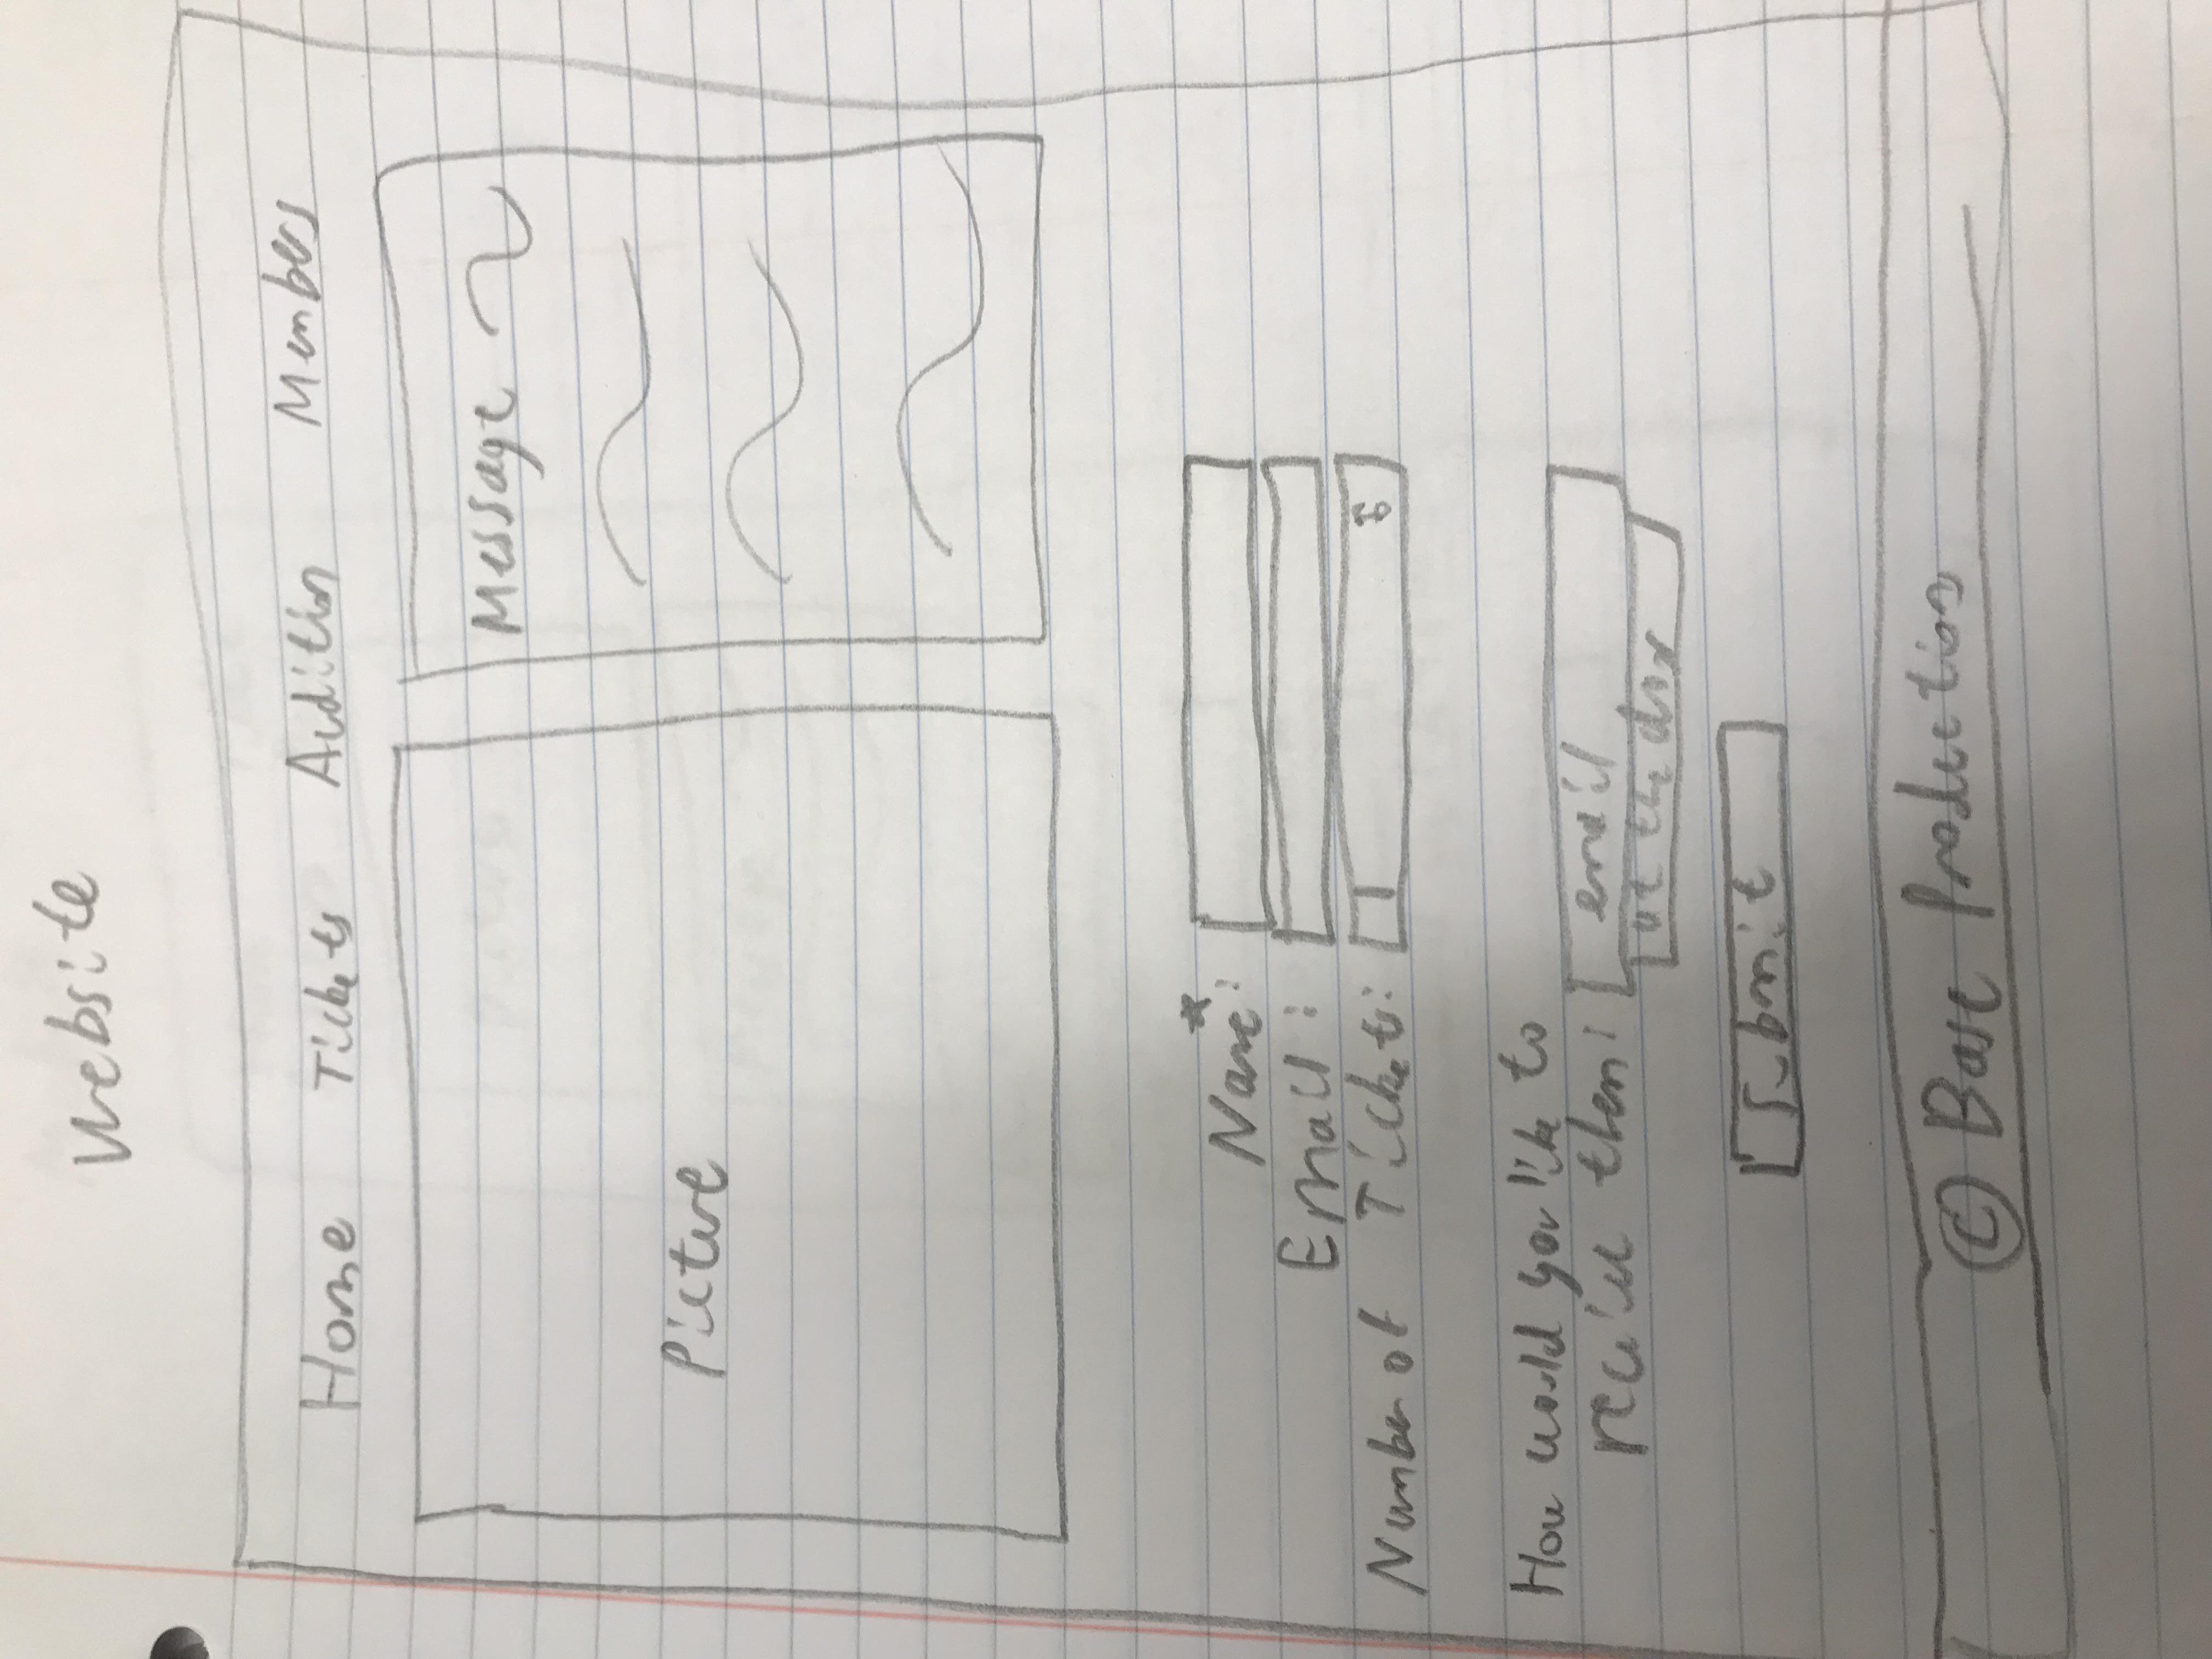 Website
Home Tickets Audition Members
Picture
Message
Name*:
Email:
Number of Tickets: 1 6
How would you like to
recieve them: email
at the door
Submit
© Base Production